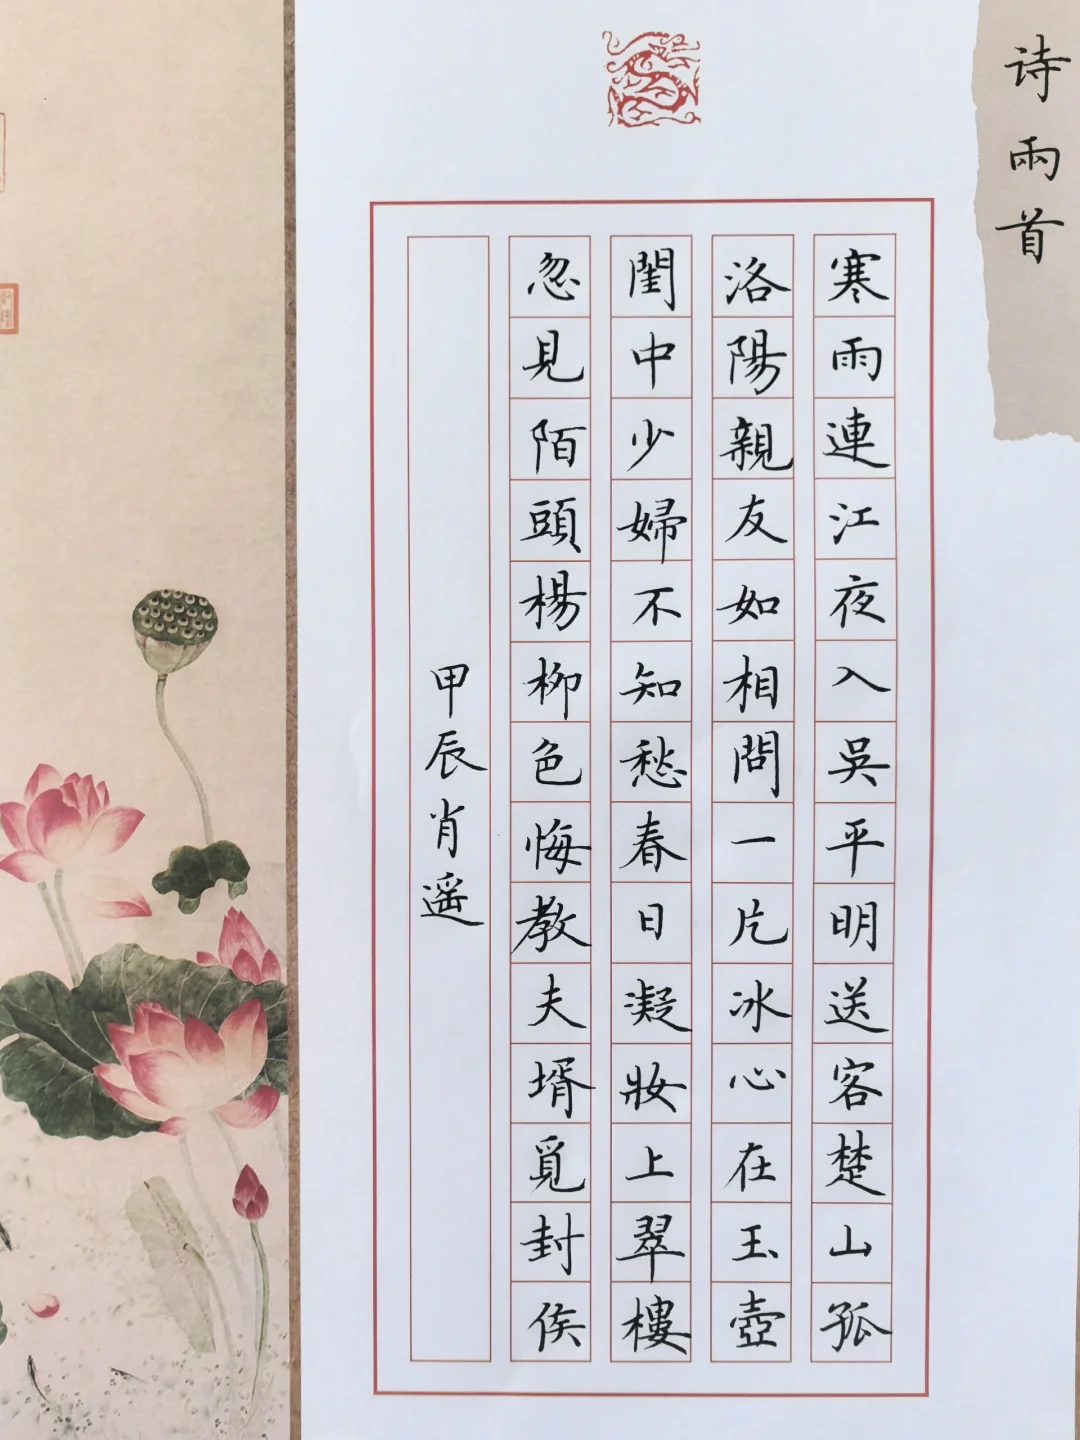 诗兩首
寒雨連江夜入吳平明送客楚山孤
洛陽親友如相問一片冰心在玉壺
閨中少婦不知愁春日凝妝上翠樓
忽見陌頭楊柳色悔教夫壻覓封侯
甲辰肖遥